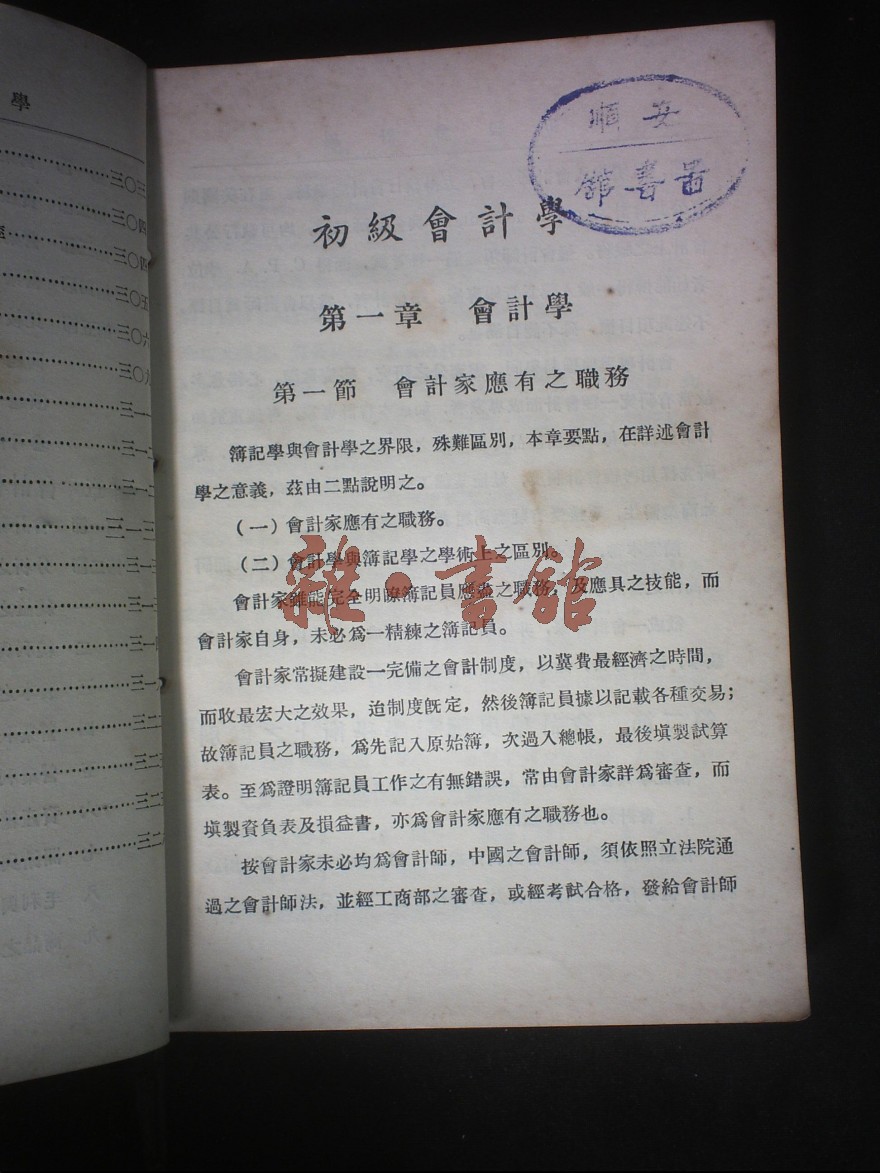 學
三〇三
四〇三
四〇三
五〇三
六〇三
九〇三
一一三
二一三
安順
圖書館
初級會計學
第一章 會計學
第一節 會計家應有之職務
簿記學與會計學之界限，殊難區別，本章要點，在詳述會計
學之意義，茲由二點說明之。
（一）會計家應有之職務。
（二）會計學與簿記學之學術上之區別。
雜·書館
會計家雖能完全明瞭簿記員應盡之職務，及應具之技能，而
會計家自身，未必爲一精練之簿記員。
會計家常擬建設一完備之會計制度，以冀費最經濟之時間，
而收最宏大之效果，迨制度旣定，然後簿記員據以記載各種交易；
故簿記員之職務，爲先記入原始簿，次過入總帳，最後塡製試算
表。至爲證明簿記員工作之有無錯誤，常由會計家詳爲審查，而
塡製資負表及損益書，亦爲會計家應有之職務也。
按會計家未必均爲會計師，中國之會計師，須依照立法院通
過之會計師法，並經工商部之審查，或經考試合格，發給會計師